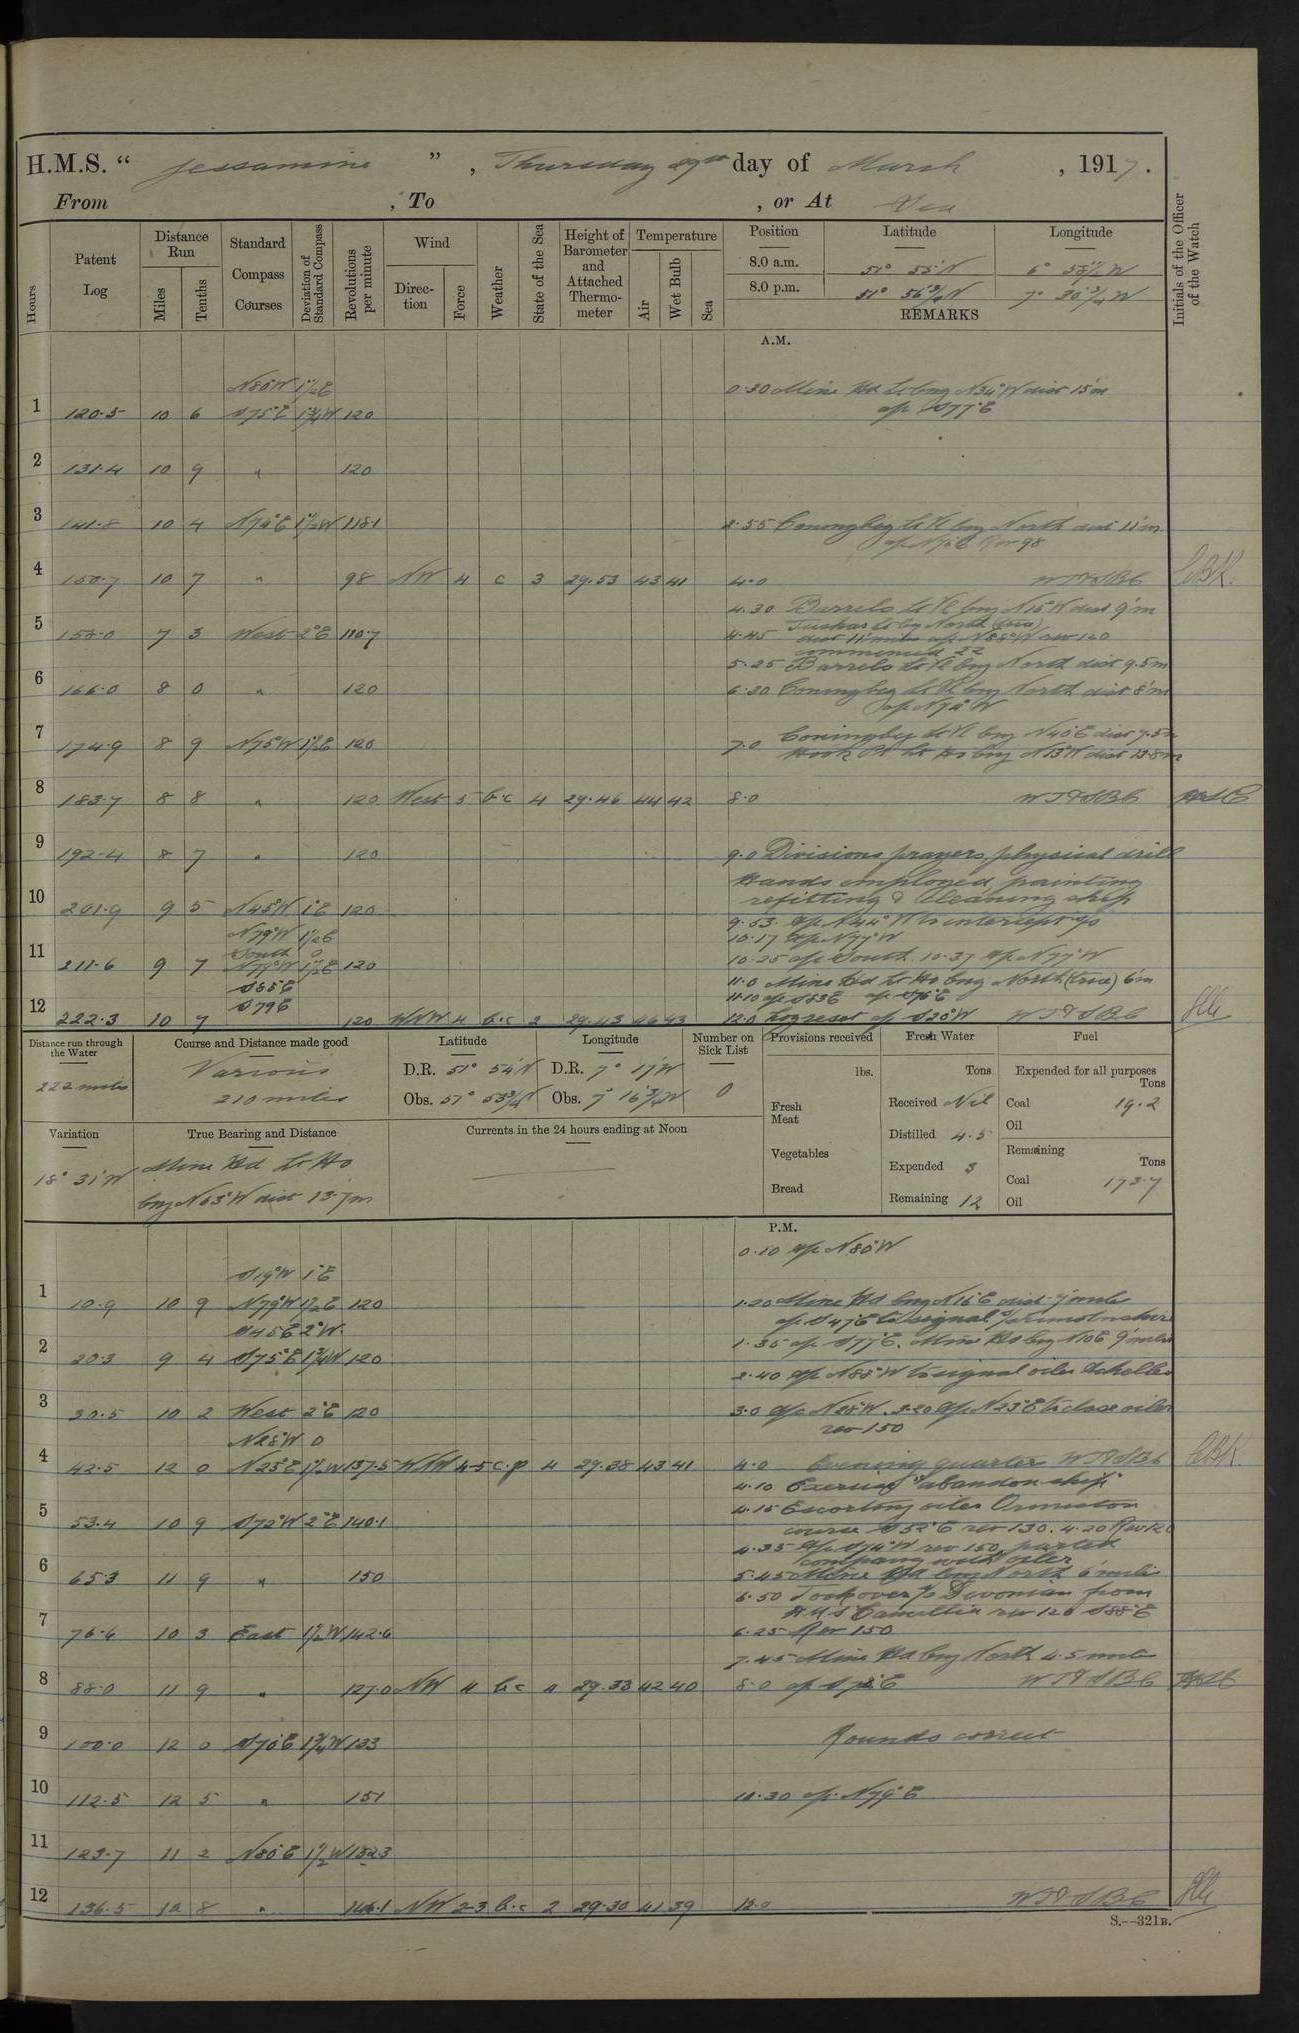 H.M.S. “ Jessamine ” , Thursday 29th day of March , 1917.
From , To , or At Sea
Hours
Patent Log
Distance Run
Miles
Tenths
Standard Compass Courses
Deviation of Standard Compass
Revolutions per minute
Wind
Direction
Force
Weather
State of the Sea
Height of Barometer and Attached Thermometer
Temperature
Air
Wet Bulb
Sea
Position Latitude Longitude
8.0 a.m. 51° 55'N
8.0 p.m.
REMARKS
Initials of the Officer of the Watch
A.M.
N80°W 1½E 0·30 Mine Hd Lt brg N34°W dist 15'm
1 120·5 10 6 S75°E 1¾W 120 a/c S77°E
2 131·4 10 9 " 120
3 141·8 10 4 N74°E 1½W 118·1 2·55 Coningbeg Lt Vl brg North dist 11'm
4 150·7 10 7 " 98 NW 4 c 3 29·53 43 41 4·0 WT&SBC
4.30 Barrels Lt Vl brg N15°W dist 9'm
5 158·0 7 3 West 2°E 110·7 4·45 Tuskar Lt brg North (true)
dist 11 miles a/c N88°W rev 120
commenced ZZ
5·25 Barrels Lt Vl brg North dist 9.5m
6 166·0 8 0 " 120 6·30 Coningbeg Lt Vl brg North dist 8'm
a/c N74°W
7 174·9 8 9 N75°W 1½E 120 7·0 Coningbeg Lt Vl brg N40°E dist 7.5m
Hook Pt Lt Ho brg N13°W dist 13·8m
8 183·7 8 8 " 120 West 5 b·c 4 29·46 44 42 8·0 WT&SBC
9 192·4 8 7 " 120 9·0 Divisions prayers physical drill
Hands employed painting
10 201·9 9 5 N45°W 1°E 120 refitting & cleaning ship
9·53 a/c N44°W to intercept s/s
N79°W 1½E 10·17 a/c N77°W
South 0 10·25 a/c South. 10·37 a/c N77°W
11 211·6 9 7 N79°W 1½E 120
S85°E 11·0 Mine Hd Lt Ho brg North (true) 6'm
S79E 11·10 a/c S83E a/c S76°E
12 222·3 10 7 120 WNW 4 b·c 2 29·43 46 43 12·0 Log reset a/c S20°W WT&SBC
Distance run through the Water
222 miles
Course and Distance made good
Various
210 miles
Latitude
D.R. 51° 54'N
Obs. 51° 53¾'N
Longitude
D.R. 7° 17'W
Obs. 7° 16¾'W
Number on Sick List
0
Provisions received
lbs.
Fresh Meat
Vegetables
Bread
Fresh Water
Tons
Received Nil
Distilled 4·5
Expended 3
Remaining 12
Fuel
Expended for all purposes
Tons
Coal 19·2
Oil
Remaining
Tons
Coal 173·7
Oil
Variation
18° 31'W
True Bearing and Distance
Mine Hd Lt Ho
brg N63°W dist 13·7m
Currents in the 24 hours ending at Noon
P.M.
0·10 a/c N80°W
S19°W 1°E
1 10·9 10 9 N79°W 1½E 120 1·20 Mine Hd brg N16°E dist 7 miles
S45E 2°W a/c S47°E to signal
2 20·3 9 4 S75°E 1¾W 120 1·35 a/c S77°E. Mine Hd brg N10E 9 miles
2·40 a/c N88°W to signal oiler
3 30·5 10 2 West 2°E 120 3·0 a/c N28°W. 3·20 a/c N23°E to close oiler
N28°W 0 rev 150
4 42·5 12 0 N25°E 1½W 137·5 WNW 4-5 c·p 4 29·38 43 41 4·0 Evening quarters WT&SBC
4·10 Exercise "abandon ship"
4·15 Escorting oiler Ormiston
5 53·4 10 9 S72°W 2°E 140·1 course S52°E rev 130. 4·20 Rev 120
4·35 a/c S74°W rev 150 parted
company with oiler
6 65·3 11 9 " 150 5·45 Mine Hd brg North 6 miles
6·50 Took over s/s Devonian from
HMS Camellia rev 120 S88°E
7 76·6 10 3 East 1½W 142·6 6·25 Rev 150
7·45 Mine Hd brg North 4·5 miles
8 88·0 11 9 " 127·0 NW 4 b·c 4 29·33 42 40 8·0 WT&SBC
9 100·0 12 0 S70°E 1¾W 133 Rounds correct
10 112·5 12 5 " 151 10·30 a/c N79°E
11 123·7 11 2 N80°E 1½W
12 136·5 12 8 " 146·1 NW 2-3 b·c 2 29·30 41 39 12·0 WT&SBC
S.—321B.